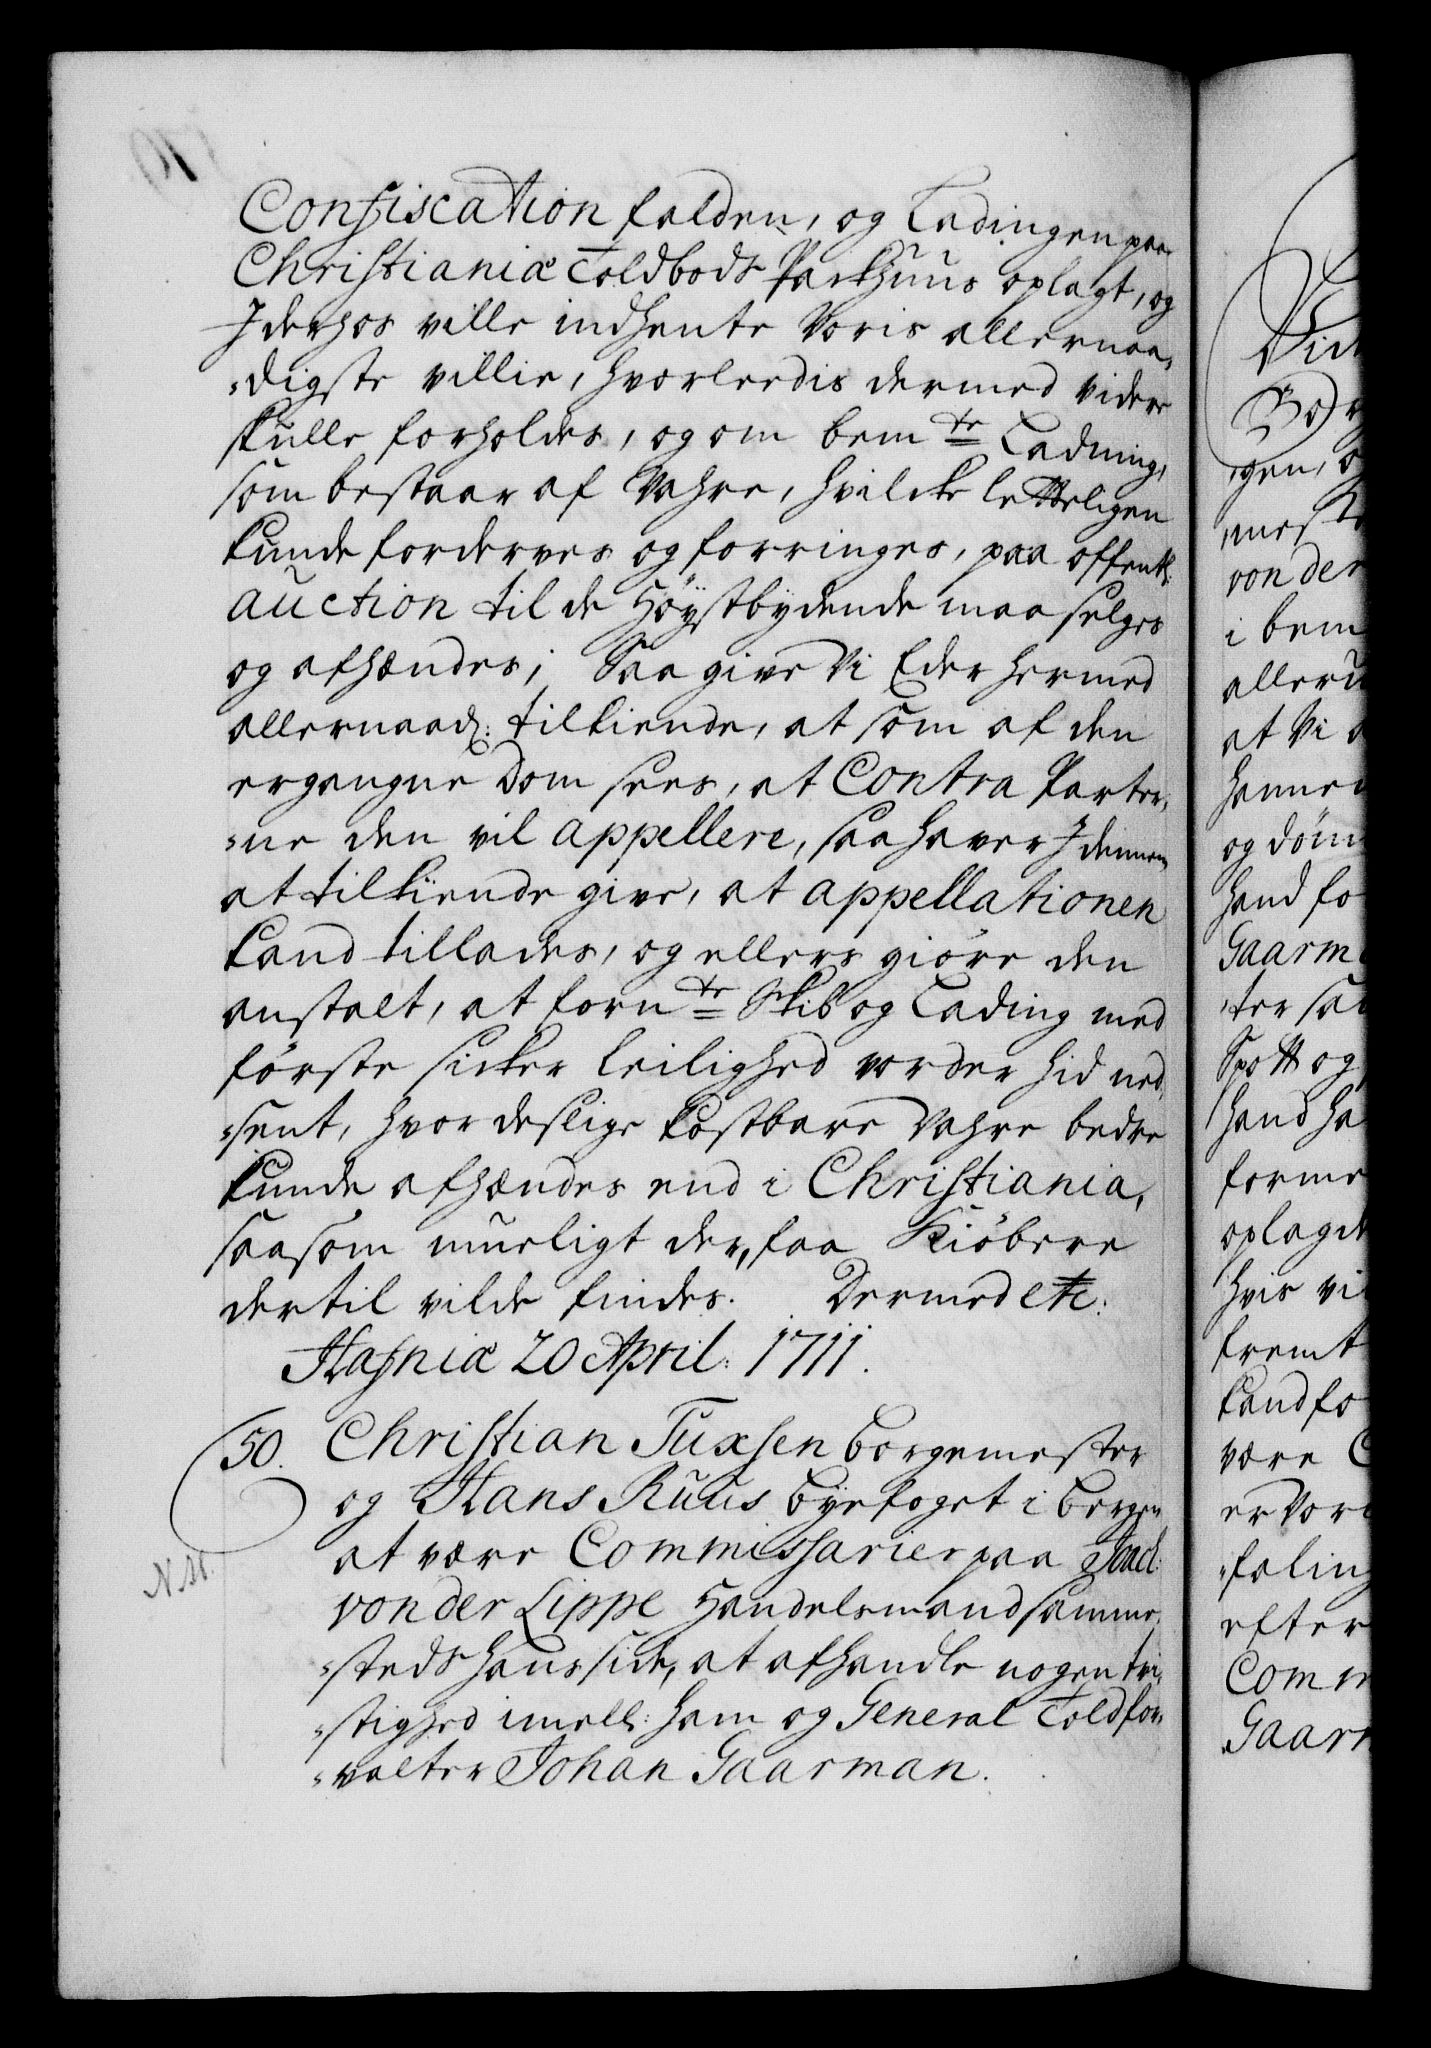 Confiscation falden, og Ladingen paa
Christianiæ Toldbods Packhuus oplagt, og
I derhos ville indhente Voris allernaa-
-digste villie, hvorleedis dermed videre
skulle forholdes, og om bem te Ladning,
som bestaar af Vahre, hvilcke letteligen
kunde forderves og forringes, paa offentl:
auction til de Höystbydende maa selges
og afhændes; Saa give Vi Eder hermed
allernaad: tilkiende, at som af den
ergangne Dom sees, at Contra Parter-
-ne den vil appellere, saa haver I dennem
at tilkiende give, at appellationen
kand tillades, og ellers giöre den
anstalt, at forn te Skib og Lading med
förste sicker leilighed vorder hid ned-
-sent, hvor deslige kostbare Vahre bedre
kunde afhændes end i Christiania,
saasom mueligt der, faa Kiöbere
dertil vilde findes. Dermed etc:
Hafniæ 20 April: 1711.
50. Christian Tuxsen borgemester
og Hans Ruus byefoget i bergen
at være Commissarier paa Joach:
von der Lippe Handelsmand samme-
-steds hans side, at afhandle nogen tvi-
-stighed imell: ham og General Toldfor-
-valter Johan Gaarman.
N.M.
Vid
Bor
-gen, o
-meste
von der
i bem
alleru
at Vi a
hannem
og döm
hand fo
Gaarma
-ter sa
Spott og
hand ha
forme
oplagde
hvis vi
fremt
kand fo
være C
er Vor
-faling
efter
Comm
Gaarm